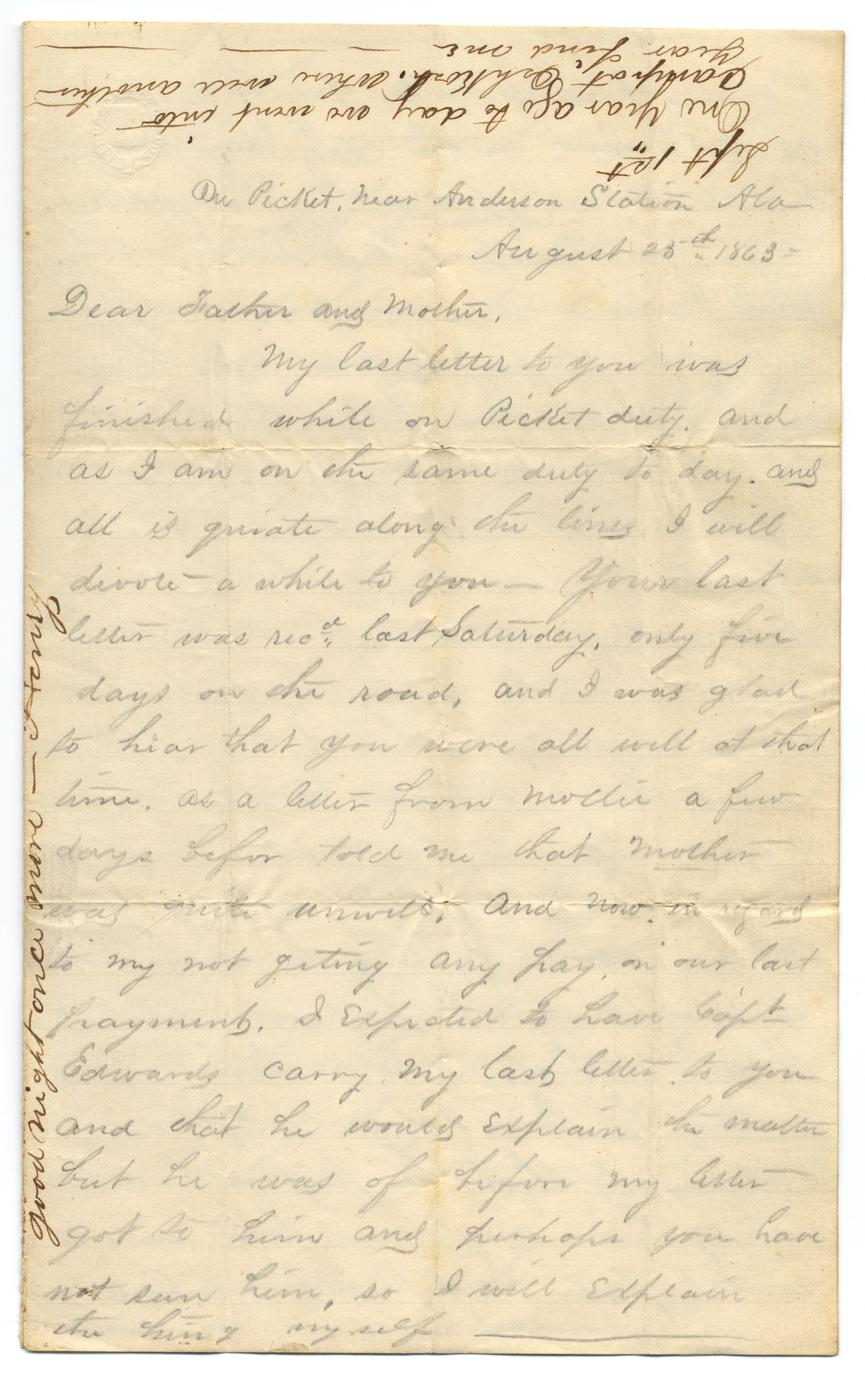 On Picket, near Anderson Station Ala
August 25th 1863 -
Dear Father and Mother,
My last letter to you was
finished while on Picket duty. and
as I am on the same duty to day. and
all is quiate along the lines I will
divote a while to you — Your last
letter was recd last Saturday, only five
days on the road, and I was glad
to hear that you were all well at that
time. as a letter from Mollie a few
days befor told me that Mother
was quite unwell, And now, in regard
to my not geting any pay, on our last
payment. I Expected to have Capt
Edwards carry my last letter to you
and that he would Explain the matter
but he was of before my letter
got to him and perhaps you have
not seen him, so I will Explain
the thing myself
good night once more — Henry
Sept 1st
One Year ago to day we went into
Camp at Oshkosh. Where will another
year find one